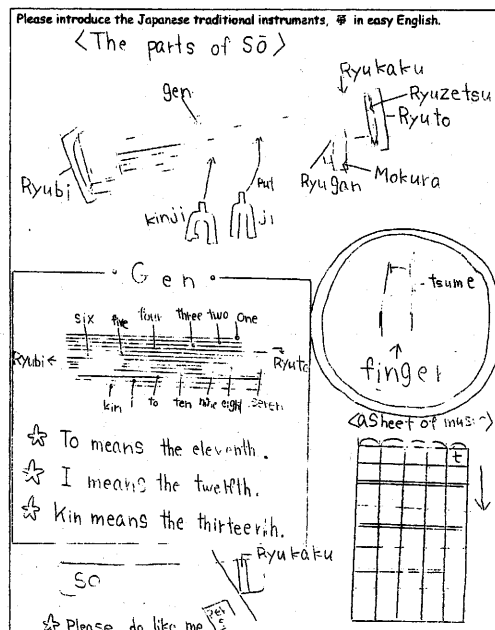 Please introduce the Japanese traditional instruments, 箏 in easy English.
<The parts of Sō>
gen
Ryukaku
Ryuzetsu
Ryuto
Ryubi
kinji
Put
ji
Ryugan
Mokura
Gen
six
five
four
three
two
One
Ryubi ←
Ryuto
kin
i
to
ten
nine
eight
seven
☆ To means the eleventh.
☆ I means the twelfth.
☆ Kin means the thirteenth.
tsume
finger
<a sheet of music>
t
Ryukaku
SO
☆ Please do like me